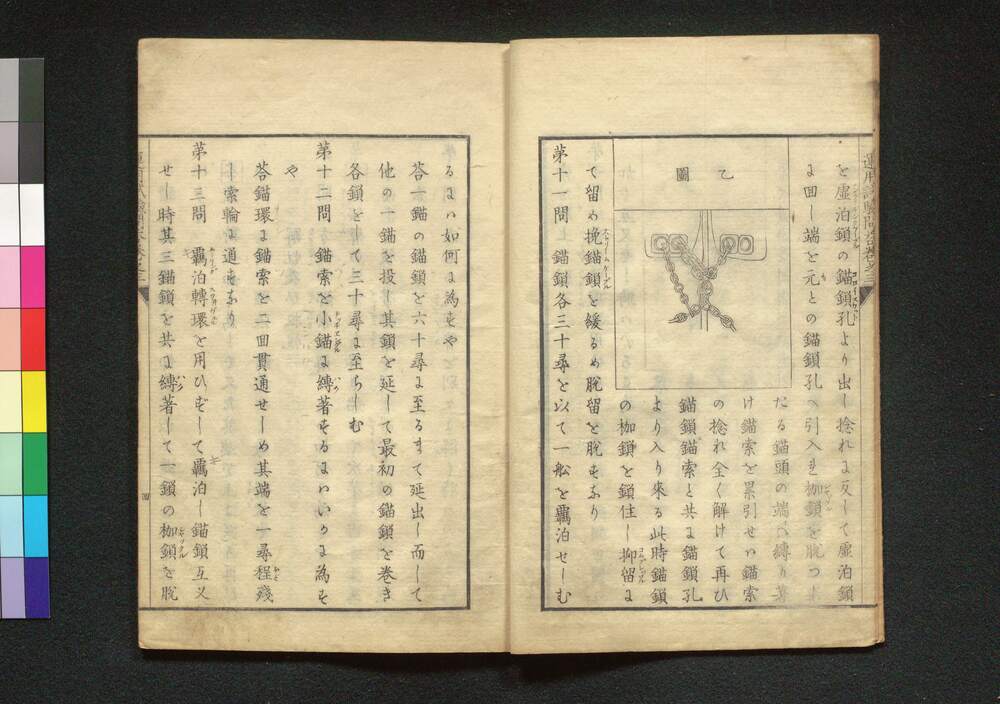 を虚泊鎖の錨鎖孔より出し捻れに反して虚泊鎖
に回し端を元との錨鎖孔へ引入れ枷鎖を脱つ
たる錨頭の端へ縛り
け錨索を累引せい錨索
の捻れ全く解けて再ひ
錨鎖錨索と共に錨鎖孔
より入り来る此時錨鎖
の枷鎖を鎖住し抑留に
乙圖
て留め挽錨鎖を緩るめ脱留を脱すなり
第十一問 錨鎖各三十尋を以て一舩を羈泊せしむ
るには如何に為すや
答一錨の錨鎖を六十尋に至るまて延出し而して
他の一錨を投し其鎖を延して最初の錨鎖を巻き
各鎖をして三十尋に至らしむ
第十二問 錨索を小錨に縛著するにはいかに為す
や
答錨環に錨索を二回貫通せしめ其端を一尋程殘
し索輪に通すなり
第十三問 羈泊轉環を用ひずして羈泊し錨鎖互乂
せし時其三錨鎖を共に縛著して一鎖の枷鎖を脱
四